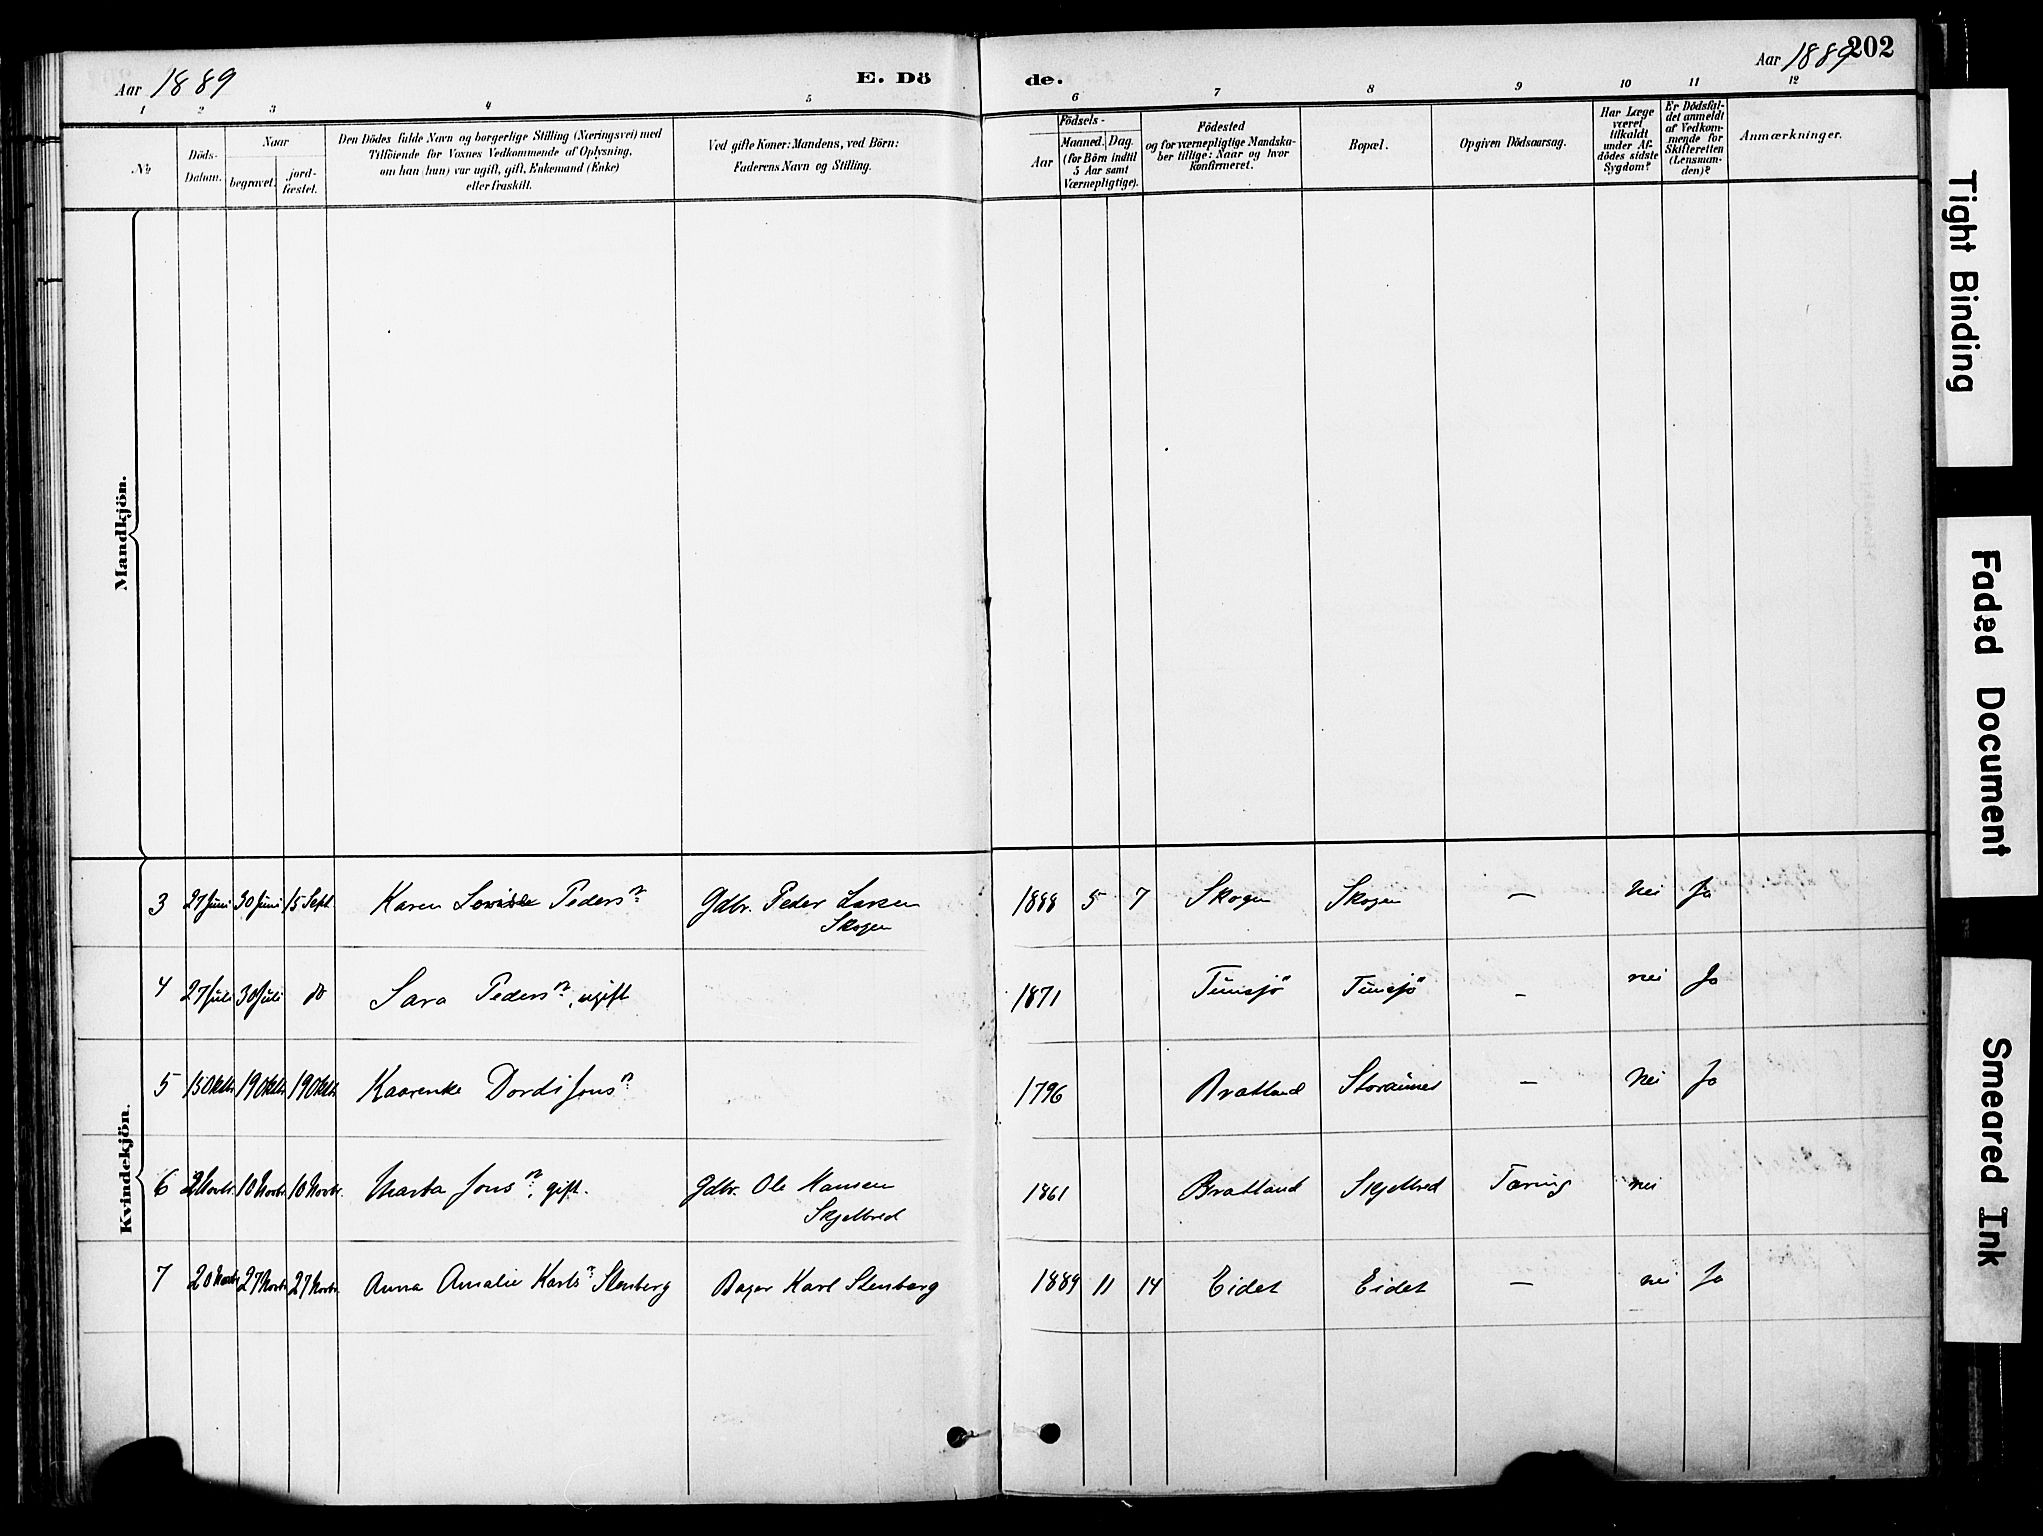 Aar 1889
E. Dö
de.
Aar 1889
202
1 2 3 4 5 6 7 8 9 10 11 12
№
Döds-
Datum.
Naar
begravet.
jord-
fæstet.
Den Dödes fulde Navn og borgerlige Stilling (Næringsvei) med
Tilföiende for Voxnes Vedkommende af Oplysning,
om han (hun) var ugift, gift, Enkemand (Enke)
eller fraskilt.
Ved gifte Koner: Mandens, ved Börn:
Faderens Navn og Stilling.
Födsels-
Aar
Maaned. Dag.
(for Börn indtil
5 Aar samt
Værnepligtige).
Födested
og for værnepligtige Mandska-
ber tillige: Naar og hvor
konfirmeret.
Bopæl.
Opgiven Dödsaarsag.
Har Læge
været
tilkaldt
under Af-
dödes sidste
Sygdom?
Er Dödsfal-
det anmeldt
af Vedkom-
mende for
Skifteretten
(Lensman-
den)?
Anmærkninger.
Mandkjön.
Kvindekjön.
3 27 Juni 30 Juni 15 Sept. Karen Lovise Pedersn. Gdbr. Peder Larsen 1888 5 7 Skogen Skogen — Nei Ja
Skogen
4 27 Juli 30 Juli do Sara Pedersn., ugift 1871 Tunsjö Tunsjö — nei Ja
5 15 Oktbr. 19 Oktbr. 19 Oktbr. Kaarenke Dordi Jonsn. 1796 Bratland — Nei Ja
6 2 Novbr. 10 Novbr. 10 Novbr. Marta Jonsn., gift. Gdbr. Ole Hansen 1861 Bratland Skjelbred Tæring nei
Skjelbred
7 20 Novbr. 27 Novbr. 27 Novbr. Anna Amalie Karlsn. Stenberg Bager Karl Stenberg 1889 11 14 Eidet Eidet — nei Ja
Tight Binding
Faded Document
Smeared Ink